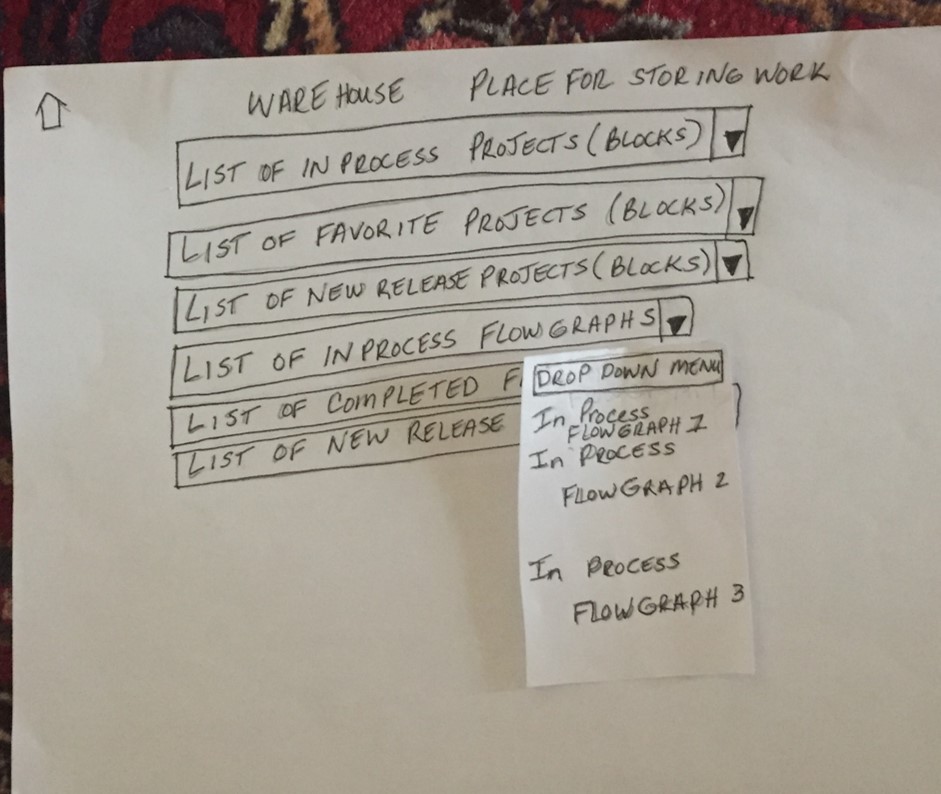 WAREHOUSE PLACE FOR STORING WORK
LIST OF IN PROCESS PROJECTS (BLOCKS)
LIST OF FAVORITE PROJECTS (BLOCKS)
LIST OF NEW RELEASE PROJECTS (BLOCKS)
LIST OF IN PROCESS FLOWGRAPHS
LIST OF COMPLETED F
LIST OF NEW RELEASE
DROP DOWN MENU
In Process
FLOWGRAPH 1
In PROCESS
FLOWGRAPH 2
In PROCESS
FLOWGRAPH 3